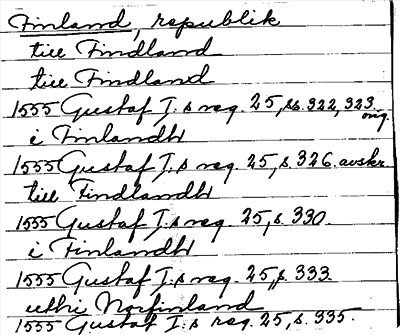 Finland, republik
till Findland
till Findland
1555 Gustaf I:s reg. 25, ss. 322, 323. orig.
i Finlandh
1555 Gustaf I:s reg. 25, s. 326. avskr.
till Findlandh
1555 Gustaf I:s reg. 25, s. 330.
i Finlandh
1555 Gustaf I:s reg. 25, s. 333.
uthi Norfinland
1555 Gustaf I:s reg. 25, s. 335.